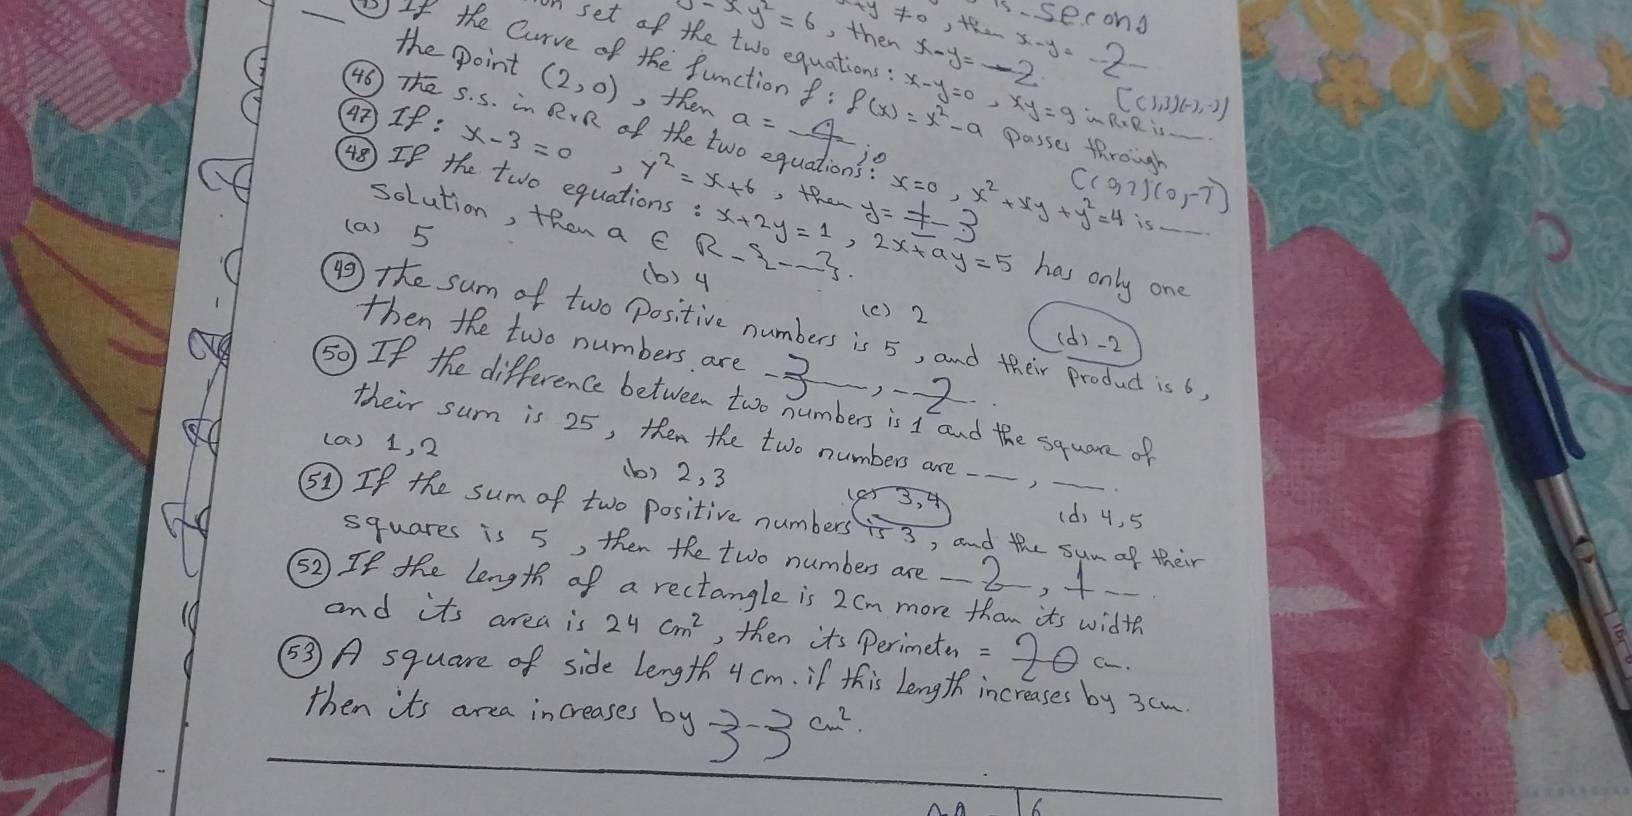 second
y² = 6, then x-y = -2
x+y ≠ 0, then x-y = -2
set of the two equations: x-y=0, xy=9 in R×R is ---
45 If the Curve of the function f: f(x) = x²-a passes through
the Point (2,0), then a = 4
46 The s.s. in R×R of the two equations: x=0, x²+xy+y²=4 is ---
47 If: x-3=0, y²=x+6, then y= ±3
48 If the two equations: x+2y=1, 2x+ay=5 has only one
Solution, then a ∈ R-{---}.
(a) 5 (b) 4 (c) 2 (d) -2
49 The sum of two Positive numbers is 5, and their product is 6,
then the two numbers are 3, 2.
50 If the difference between two numbers is 1 and the square of
their sum is 25, then the two numbers are ---, ---.
(a) 1,2 (b) 2,3 (c) 3,4 (d) 4,5
51 If the sum of two positive numbers is 3, and the sum of their
squares is 5, then the two numbers are 2, 1.
52 If the length of a rectangle is 2cm more than its width
and its area is 24 cm², then its Perimeter = 20 cm.
53 A square of side length 4cm. if this length increases by 3cm.
then its area increases by 33 cm².